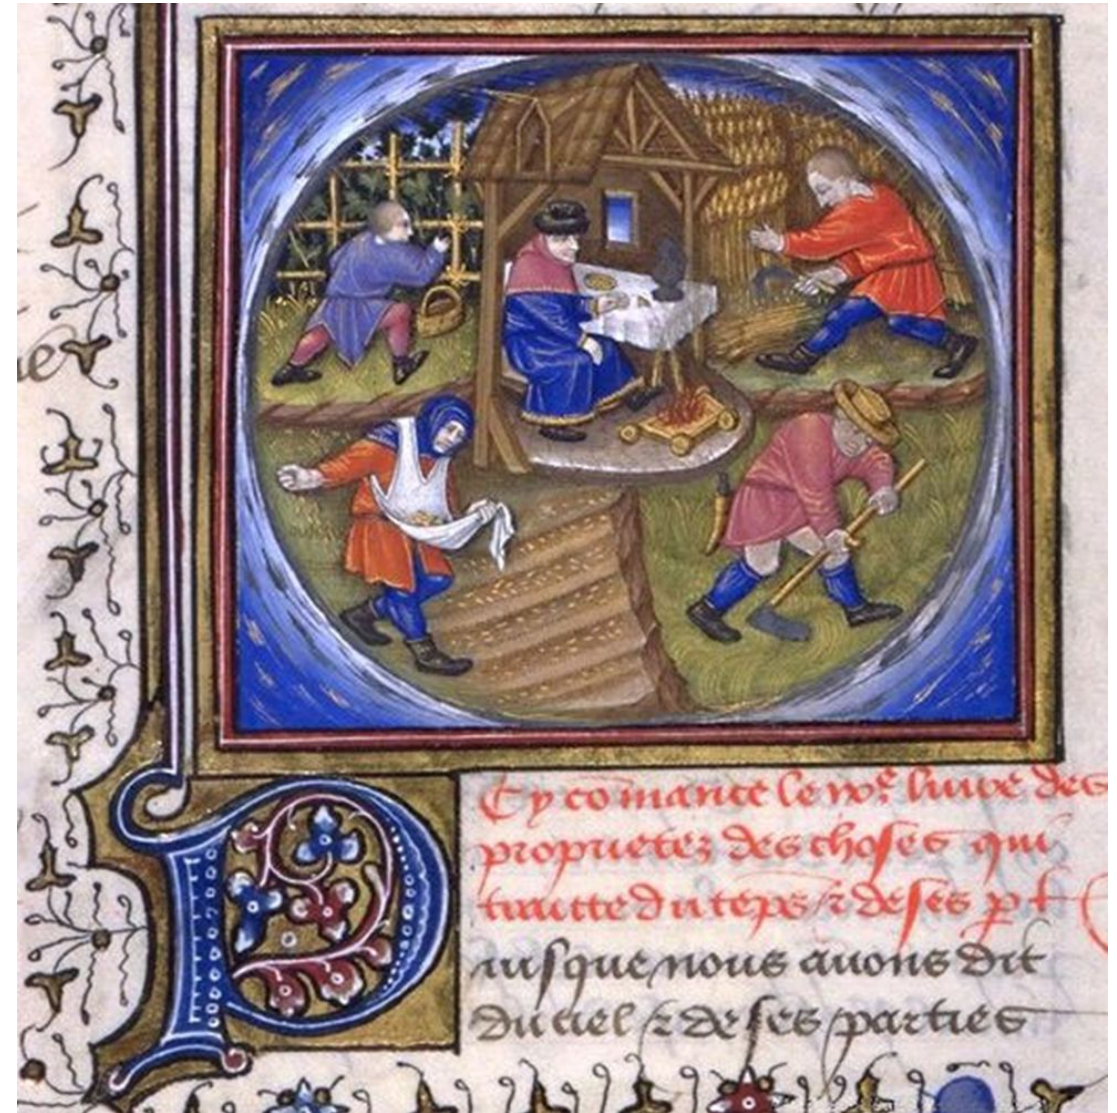 Cy cõmance le ixᵉ livre des
proprietez des choses qui
traitte du tẽps ⁊ de ses p̱t
Puisque nous avons dit
du ciel ⁊ de ses parties